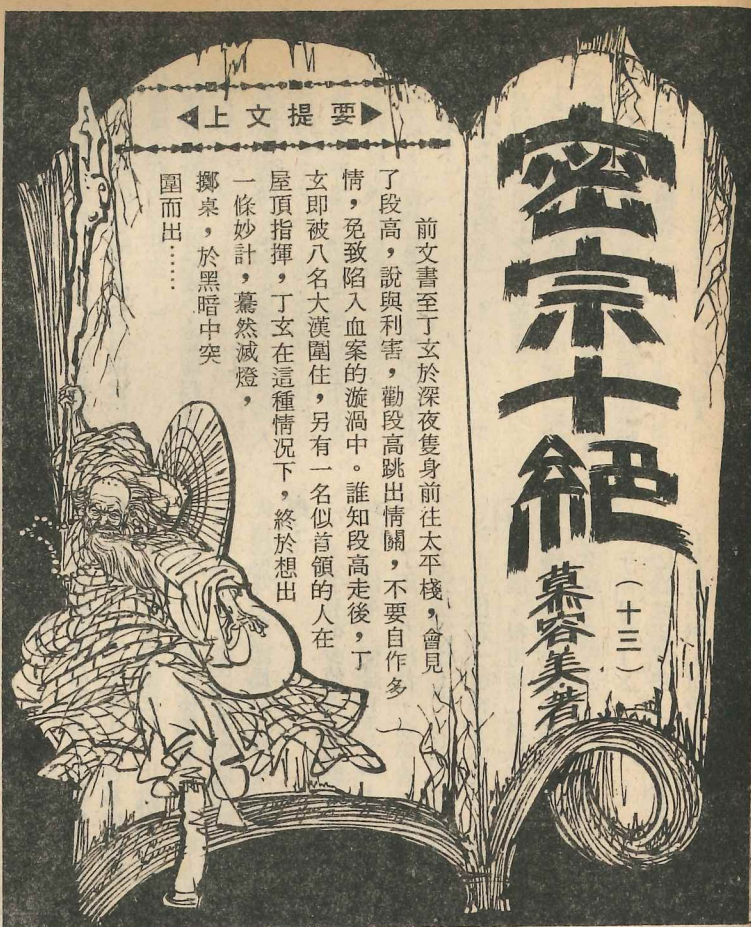 密宗十絕
(十三)
慕容美著
◀上文提要▶
前文書至丁玄於深夜隻身前往太平棧,會見
了段高,說與利害,勸段高跳出情關,不要自作多
情,免致陷入血案的漩渦中。誰知段高走後,丁
玄即被八名大漢圍住,另有一名似首領的人在
屋頂指揮,丁玄在這種情况下,終於想出
一條妙計,驀然滅燈,
擲桌,於黑暗中突
圍而出……